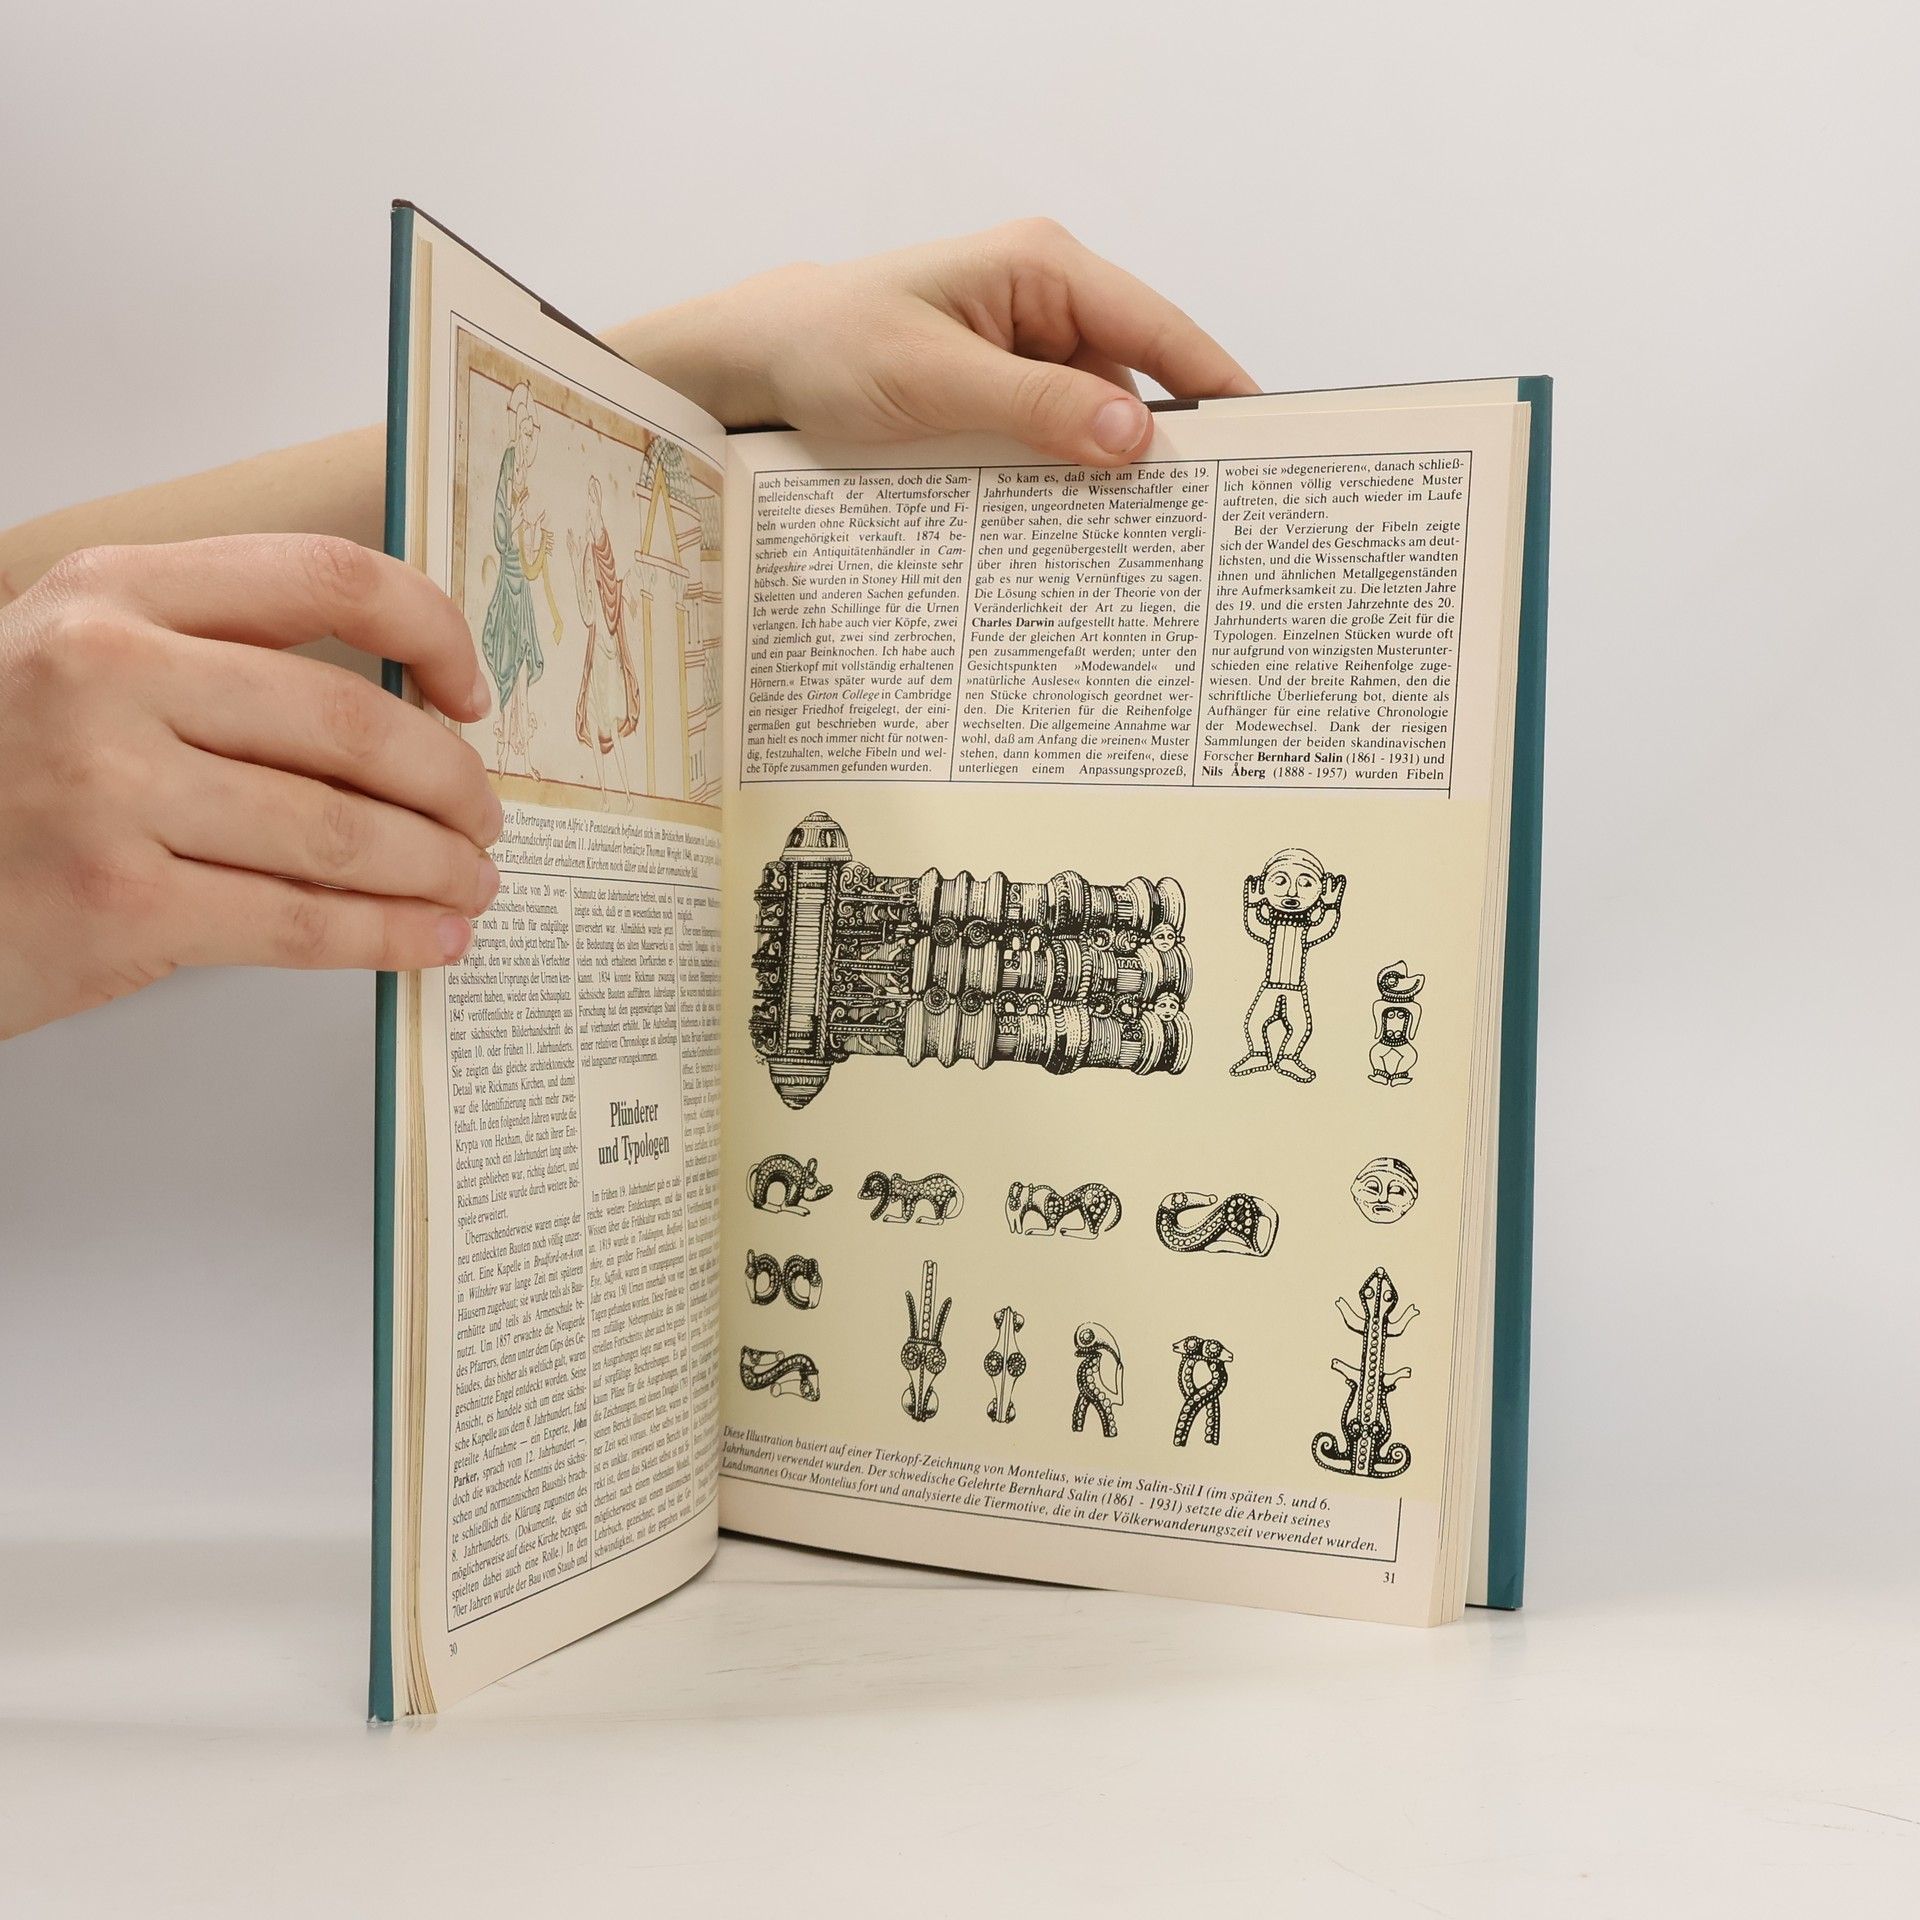 lete Übertragung von Alfric's Pentateuch befindet sich im Britischen Museum in London.
Bilderhandschrift aus dem 11. Jahrhundert benützte Thomas Wright 1846, um zu zeigen,
chen Einzelheiten der erhaltenen Kirchen noch älter sind als der romanische Stil.
eine Liste von 20 »ver-
ächsischen« beisammen.
ar noch zu früh für endgültige
olgerungen, doch jetzt betrat Tho-
Wright, den wir schon als Verfechter
des sächsischen Ursprungs der Urnen ken-
nengelernt haben, wieder den Schauplatz.
1845 veröffentlichte er Zeichnungen aus
einer sächsischen Bilderhandschrift des
späten 10. oder frühen 11. Jahrhunderts.
Sie zeigten das gleiche architektonische
Detail wie Rickmans Kirchen, und damit
war die Identifizierung nicht mehr zwei-
felhaft. In den folgenden Jahren wurde die
Krypta von Hexham, die nach ihrer Ent-
deckung noch ein Jahrhundert lang unbe-
achtet geblieben war, richtig datiert, und
Rickmans Liste wurde durch weitere Bei-
spiele erweitert.
Überraschenderweise waren einige der
neu entdeckten Bauten noch völlig unzer-
stört. Eine Kapelle in Bradford-on-Avon
in Wiltshire war lange Zeit mit späteren
Häusern zugebaut; sie wurde teils als Bau-
ernhütte und teils als Armenschule be-
nutzt. Um 1857 erwachte die Neugierde
des Pfarrers, denn unter dem Gips des Ge-
bäudes, das bisher als weltlich galt, waren
geschnitzte Engel entdeckt worden. Seine
Ansicht, es handele sich um eine sächsi-
sche Kapelle aus dem 8. Jahrhundert, fand
geteilte Aufnahme — ein Experte, John
Parker, sprach vom 12. Jahrhundert —,
doch die wachsende Kenntnis des sächsi-
schen und normannischen Baustils brach-
te schließlich die Klärung zugunsten des
8. Jahrhunderts. (Dokumente, die sich
möglicherweise auf diese Kirche bezogen,
spielten dabei auch eine Rolle.) In den
70er Jahren wurde der Bau vom Staub und
Schmutz der Jahrhunderte befreit, und es
zeigte sich, daß er im wesentlichen noch
unversehrt war. Allmählich wurde jetzt
die Bedeutung des alten Mauerwerks in
vielen noch erhaltenen Dorfkirchen er-
kannt. 1834 konnte Rickman zwanzig
sächsische Bauten aufführen. Jahrelange
Forschung hat den gegenwärtigen Stand
auf vierhundert erhöht. Die Aufstellung
einer relativen Chronologie ist allerdings
viel langsamer vorangekommen.
Plünderer
und Typologen
Im frühen 19. Jahrhundert gab es zahl-
reiche weitere Entdeckungen, und das
Wissen über die Frühkultur wuchs rasch
an. 1819 wurde in Toddington, Bedford-
shire, ein großer Friedhof entdeckt. In
Eye, Suffolk, waren im vorangegangenen
Jahr etwa 150 Urnen innerhalb von vier
Tagen gefunden worden. Diese Funde wa-
ren zufällige Nebenprodukte des indu-
striellen Fortschritts; aber auch bei geziel-
ten Ausgrabungen legte man wenig Wert
auf sorgfältige Beschreibungen. Es gab
kaum Pläne für die Ausgrabungen, und
die Zeichnungen, mit denen Douglas
seinen Bericht illustriert hatte, waren
ner Zeit weit voraus. Aber selbst bei ihm
ist es unklar, inwieweit sein Bericht kor-
rekt ist, denn das Skelett selbst ist mit Si-
cherheit nach einem stehenden Modell,
möglicherweise aus einem anatomischen
Lehrbuch, gezeichnet; und bei der Ge-
schwindigkeit, mit der gegraben wurde,
30
auch beisammen zu lassen, doch die Sam-
melleidenschaft der Altertumsforscher
vereitelte dieses Bemühen. Töpfe und Fi-
beln wurden ohne Rücksicht auf ihre Zu-
sammengehörigkeit verkauft. 1874 be-
schrieb ein Antiquitätenhändler in Cam-
bridgeshire »drei Urnen, die kleinste sehr
hübsch. Sie wurden in Stoney Hill mit den
Skeletten und anderen Sachen gefunden.
Ich werde zehn Schillinge für die Urnen
verlangen. Ich habe auch vier Köpfe, zwei
sind ziemlich gut, zwei sind zerbrochen,
und ein paar Beinknochen. Ich habe auch
einen Stierkopf mit vollständig erhaltenen
Hörnern.« Etwas später wurde auf dem
Gelände des Girton College in Cambridge
ein riesiger Friedhof freigelegt, der eini-
germaßen gut beschrieben wurde, aber
man hielt es noch immer nicht für notwen-
dig, festzuhalten, welche Fibeln und wel-
che Töpfe zusammen gefunden wurden.
So kam es, daß sich am Ende des 19.
Jahrhunderts die Wissenschaftler einer
riesigen, ungeordneten Materialmenge ge-
genüber sahen, die sehr schwer einzuord-
nen war. Einzelne Stücke konnten vergli-
chen und gegenübergestellt werden, aber
über ihren historischen Zusammenhang
gab es nur wenig Vernünftiges zu sagen.
Die Lösung schien in der Theorie von der
Veränderlichkeit der Art zu liegen, die
Charles Darwin aufgestellt hatte. Mehrere
Funde der gleichen Art konnten in Grup-
pen zusammengefaßt werden; unter den
Gesichtspunkten »Modewandel« und
»natürliche Auslese« konnten die einzel-
nen Stücke chronologisch geordnet wer-
den. Die Kriterien für die Reihenfolge
wechselten. Die allgemeine Annahme war
wohl, daß am Anfang die »reinen« Muster
stehen, dann kommen die »reifen«, diese
unterliegen einem Anpassungsprozeß,
wobei sie »degenerieren«, danach schließ-
lich können völlig verschiedene Muster
auftreten, die sich auch wieder im Laufe
der Zeit verändern.
Bei der Verzierung der Fibeln zeigte
sich der Wandel des Geschmacks am deut-
lichsten, und die Wissenschaftler wandten
ihnen und ähnlichen Metallgegenständen
ihre Aufmerksamkeit zu. Die letzten Jahre
des 19. und die ersten Jahrzehnte des 20.
Jahrhunderts waren die große Zeit für die
Typologen. Einzelnen Stücken wurde oft
nur aufgrund von winzigsten Musterunter-
schieden eine relative Reihenfolge zuge-
wiesen. Und der breite Rahmen, den die
schriftliche Überlieferung bot, diente als
Aufhänger für eine relative Chronologie
der Modewechsel. Dank der riesigen
Sammlungen der beiden skandinavischen
Forscher Bernhard Salin (1861 - 1931) und
Nils Åberg (1888 - 1957) wurden Fibeln
Diese Illustration basiert auf einer Tierkopf-Zeichnung von Montelius, wie sie im Salin-Stil I (im späten 5. und 6.
Jahrhundert) verwendet wurden. Der schwedische Gelehrte Bernhard Salin (1861 - 1931) setzte die Arbeit seines
Landsmannes Oscar Montelius fort und analysierte die Tiermotive, die in der Völkerwanderungszeit verwendet wurden.
31